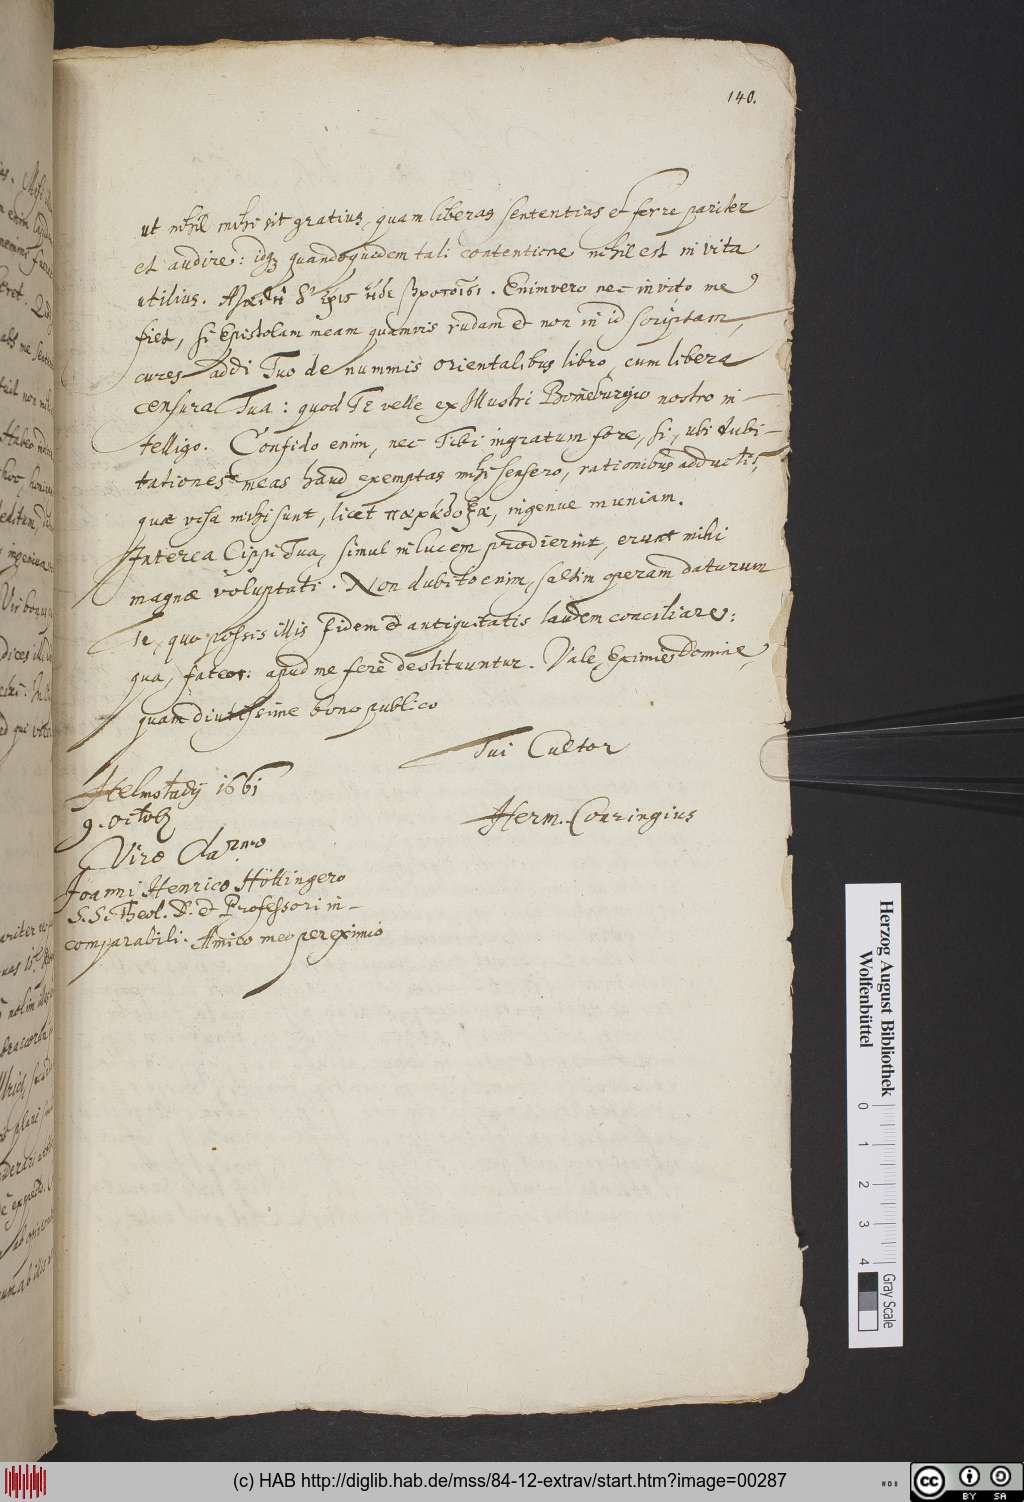 140.
ut nihil mihi sit gratius, quam liberas sententias et ferre pariter
et audire: idq; quandoquidem tali contentione nihil est in vita
utilius. Ἀγαθὴ δ' ἔρις ἥδε βροτοῖσι. Enimvero nec invito me
fiet, si Epistolam meam quamvis rudam et non in id scriptam,
cures addi Tuo de nummis orientalibus libro, cum libera
censura Tua: quod Te velle ex Illustri Boineburgio nostro in-
telligo. Confido enim, nec Tibi ingratum fore, si, ubi dubi-
tationes meas haud exemptas mihi sensero, rationibus adductis,
quæ visa mihi sunt, licet παράδοξα, ingenue muniam.
Interea Cippi Tua, simul in lucem prodierint, erunt mihi
magnæ voluptati. Non dubito enim, saltim operam daturum
Te, quo possis illis fidem et antiquitatis laudem conciliare:
qua, fateor: apud me fere destituuntur. Vale, Eximie Domine,
quam diutissime bono publico
Tui Cultor
Helmstadij 1661
9. Octob
Herm. Conringius
Viro Cla rmo
Joanni Henrico Hottingero
S. S. Theol. D. et Professori in-
comparabili. Amico meo pereximio
Herzog August Bibliothek
Wolfenbüttel
0 1 2 3 4
Gray Scale
(c) HAB http://diglib.hab.de/mss/84-12-extrav/start.htm?image=00287
cc BY SA